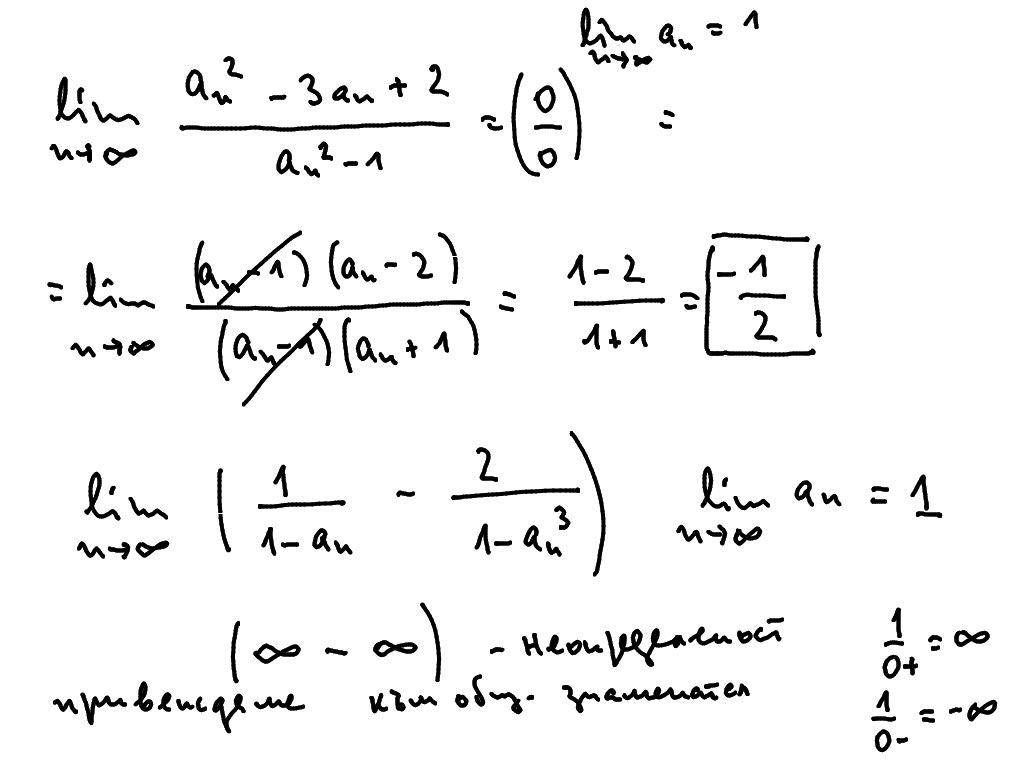 lim n→∞ a_n = 1
lim n→∞ (a_n² - 3a_n + 2)/(a_n² - 1) = (0/0) =
= lim n→∞ ((a_n - 1)(a_n - 2))/((a_n - 1)(a_n + 1)) = (1 - 2)/(1 + 1) = -1/2
lim n→∞ (1/(1 - a_n) - 2/(1 - a_n³)) lim n→∞ a_n = 1
(∞ - ∞) - неопределеност 1/0+ = ∞
към общ. знаменател 1/0- = -∞